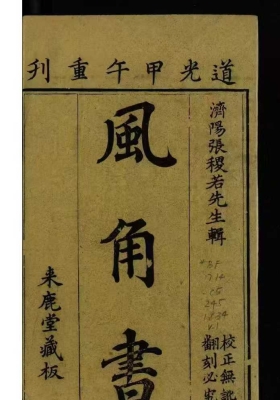 道光甲午重刊
濟陽張稷若先生輯
校正無訛
翻刻必究
風角書
来鹿堂藏板